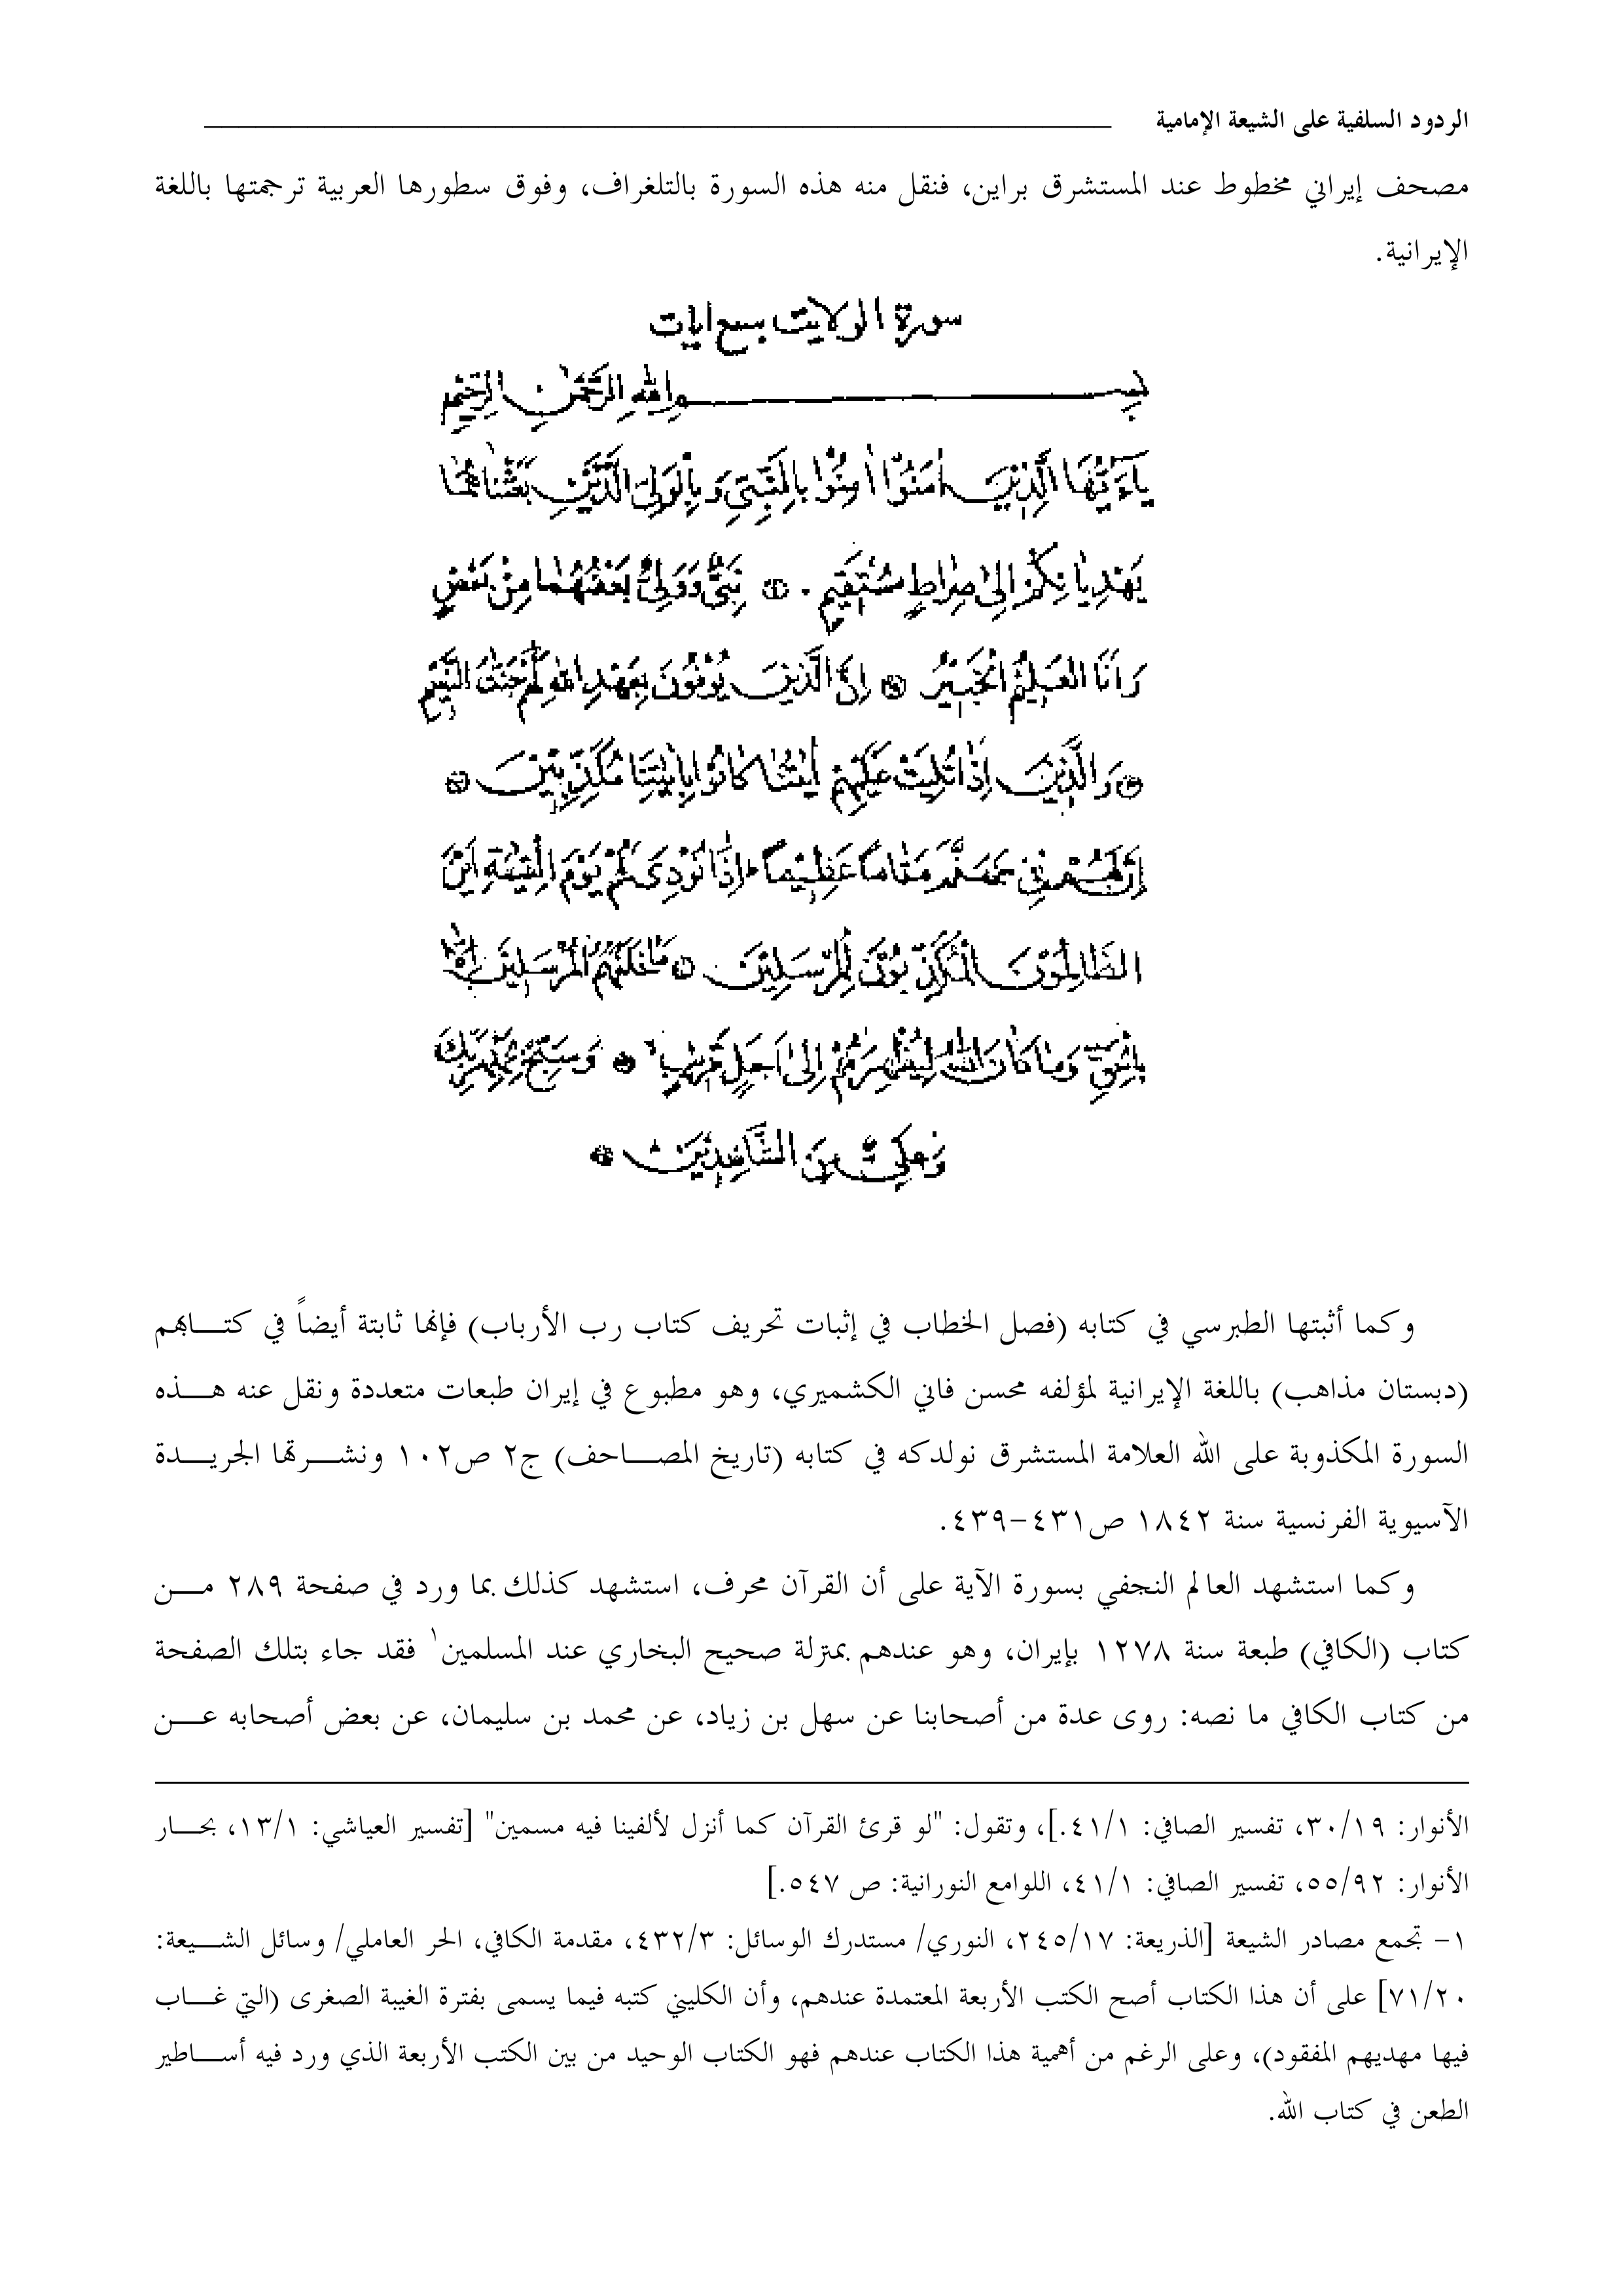 الردود السلفية على الشيعة الإمامية
مصحف إيراني مخطوط عند المستشرق براين، فنقل منه هذه السورة بالتلغراف، وفوق سطورها العربية ترجمتها باللغة
الإيرانية.
سورة الولايت سبع ايات
بسم الله الرحمن الرحيم
يَاءَيُّهَا الَّذِينَ اٰمَنُوْا اٰمِنُوْا بِالنَّبِيِّ وَبِالْوَلِيِّ الَّذَيْنِ بَعَثْنَاهُمَا
يَهْدِيَانِكُمْ اِلىٰ صِرَاطٍ مُسْتَقِيْمٍ ۞ نَبِيٌّ وَوَلِيٌّ بَعْضُهُمَا مِنْ بَعْضٍ
وَاَنَا الْعَلِيْمُ الْخَبِيْرُ ۞ اِنَّ الَّذِيْنَ يُوْفُوْنَ بِعَهْدِ اللهِ لَهُمْ جَنّٰتُ النَّعِيْمِ
۞ وَالَّذِيْنَ اِذَا تُلِيَتْ عَلَيْهِمْ اٰيٰتُنَا كَانُوْا بِاٰيٰتِنَا مُكَذِّبِيْنَ ۞
اِنَّ لَهُمْ فِيْ جَهَنَّمَ مَقَامًا عَظِيْمًا اِذَا نُوْدِيَ لَهُمْ يَوْمَ الْقِيٰمَةِ اَيْنَ
الظَّالِمُوْنَ الْمُكَذِّبُوْنَ لِلْمُرْسَلِيْنَ ۞ مَا خَلَقَهُمُ الْمُرْسَلِيْنَ اِلَّا
بِالْحَقِّ وَمَا كَانَ اللهُ لِيُظْهِرَهُمْ اِلىٰ اَجَلٍ قَرِيْبٍ ۞ وَسَبِّحْ بِحَمْدِ رَبِّكَ
وَعَلِيٌّ مِنَ الشَّاهِدِيْنَ ۞
وكما أثبتها الطبرسي في كتابه (فصل الخطاب في إثبات تحريف كتاب رب الأرباب) فإنها ثابتة أيضاً في كتـــابهم
(دبستان مذاهب) باللغة الإيرانية لمؤلفه محسن فاني الكشميري، وهو مطبوع في إيران طبعات متعددة ونقل عنه هـــذه
السورة المكذوبة على الله العلامة المستشرق نولدكه في كتابه (تاريخ المصـــاحف) ج٢ ص١٠٢ ونشـــرتها الجريـــدة
الآسيوية الفرنسية سنة ١٨٤٢ ص٤٣١-٤٣٩.
وكما استشهد العالم النجفي بسورة الآية على أن القرآن محرف، استشهد كذلك بما ورد في صفحة ٢٨٩ مـــن
كتاب (الكافي) طبعة سنة ١٢٧٨ بإيران، وهو عندهم بمنزلة صحيح البخاري عند المسلمين١ فقد جاء بتلك الصفحة
من كتاب الكافي ما نصه: روى عدة من أصحابنا عن سهل بن زياد، عن محمد بن سليمان، عن بعض أصحابه عـــن
الأنوار: ٣٠/١٩، تفسير الصافي: ٤١/١.]، وتقول: "لو قرئ القرآن كما أنزل لألفينا فيه مسمين" [تفسير العياشي: ١٣/١، بحـــار
الأنوار: ٥٥/٩٢، تفسير الصافي: ٤١/١، اللوامع النورانية: ص ٥٤٧.]
١- تجمع مصادر الشيعة [الذريعة: ٢٤٥/١٧، النوري/ مستدرك الوسائل: ٤٣٢/٣، مقدمة الكافي، الحر العاملي/ وسائل الشـــيعة:
٧١/٢٠] على أن هذا الكتاب أصح الكتب الأربعة المعتمدة عندهم، وأن الكليني كتبه فيما يسمى بفترة الغيبة الصغرى (التي غـــاب
فيها مهديهم المفقود)، وعلى الرغم من أهمية هذا الكتاب عندهم فهو الكتاب الوحيد من بين الكتب الأربعة الذي ورد فيه أســـاطير
الطعن في كتاب الله.